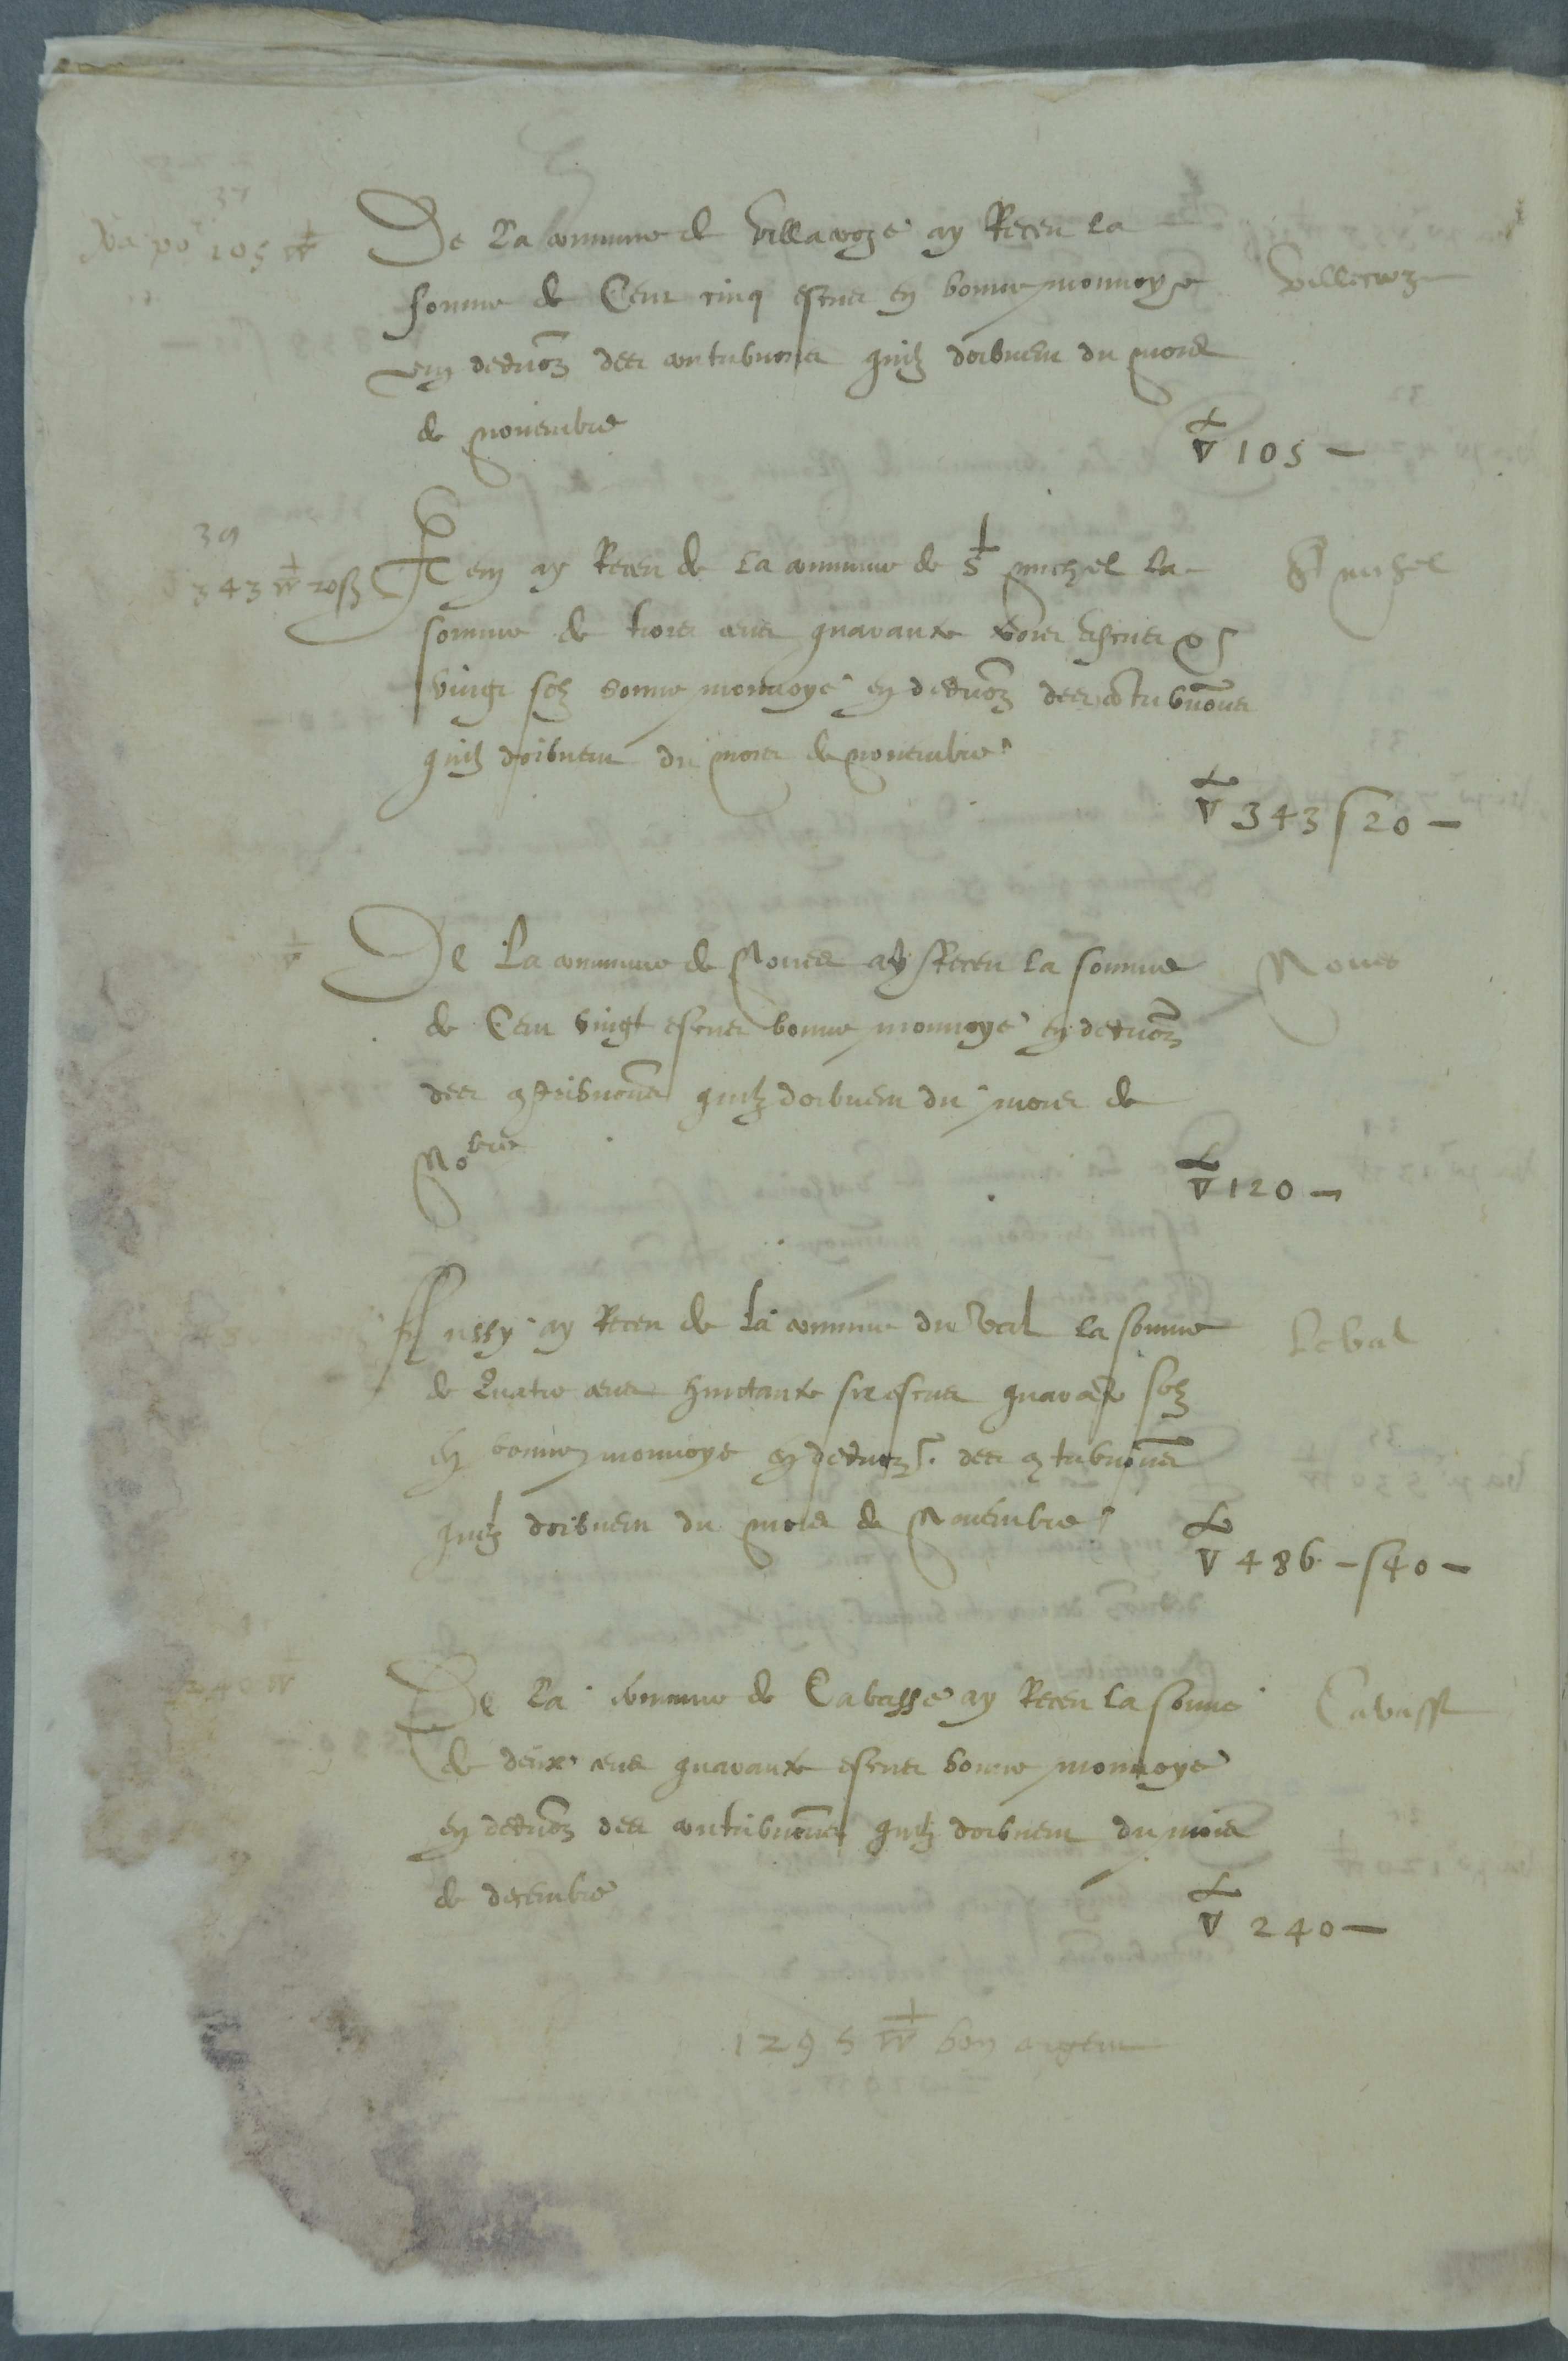 37
Va po^r 105 ▽
De La commune de Villacroze ay Receu la
somme de Cent cinq escus en bonne monnoye
em deduon des contribuons quilz doibuent du mois
de nouembre
Villecroze
▽ 105 –
39
343 ▽ 20 ß
Item ay Receu de la commune de S^t michel la
somme de trois cens quarante trois escus &
vingt solz bonne monnoye en deduon des contribuons
quilz doibuent du mois de nouembre
S^t michel
▽ 343 ſ 20 –
De La commune de Noues ay Receu la somme
de Cent vingt escus bonne monnoye en deduon
des contribuons quilz doibuent du mois de
No^bre
Noues
▽ 120 –
Aussy ay Receu de la commune du Val la somme
de Quatre cens huictante six escus quarante solz
en bonne monnoye en deduon des contribuons
quilz doibuent du mois de Nouembre
Le Val
▽ 486 – ſ 40 –
240 ▽
De La commune de Cabasse ay Receu la somme
de deux cens quarante escus bonne monnoye
en deduon des contribuons quilz doibuent du mois
de decembre
Cabasse
▽ 240 –
1295 ▽ bon argent